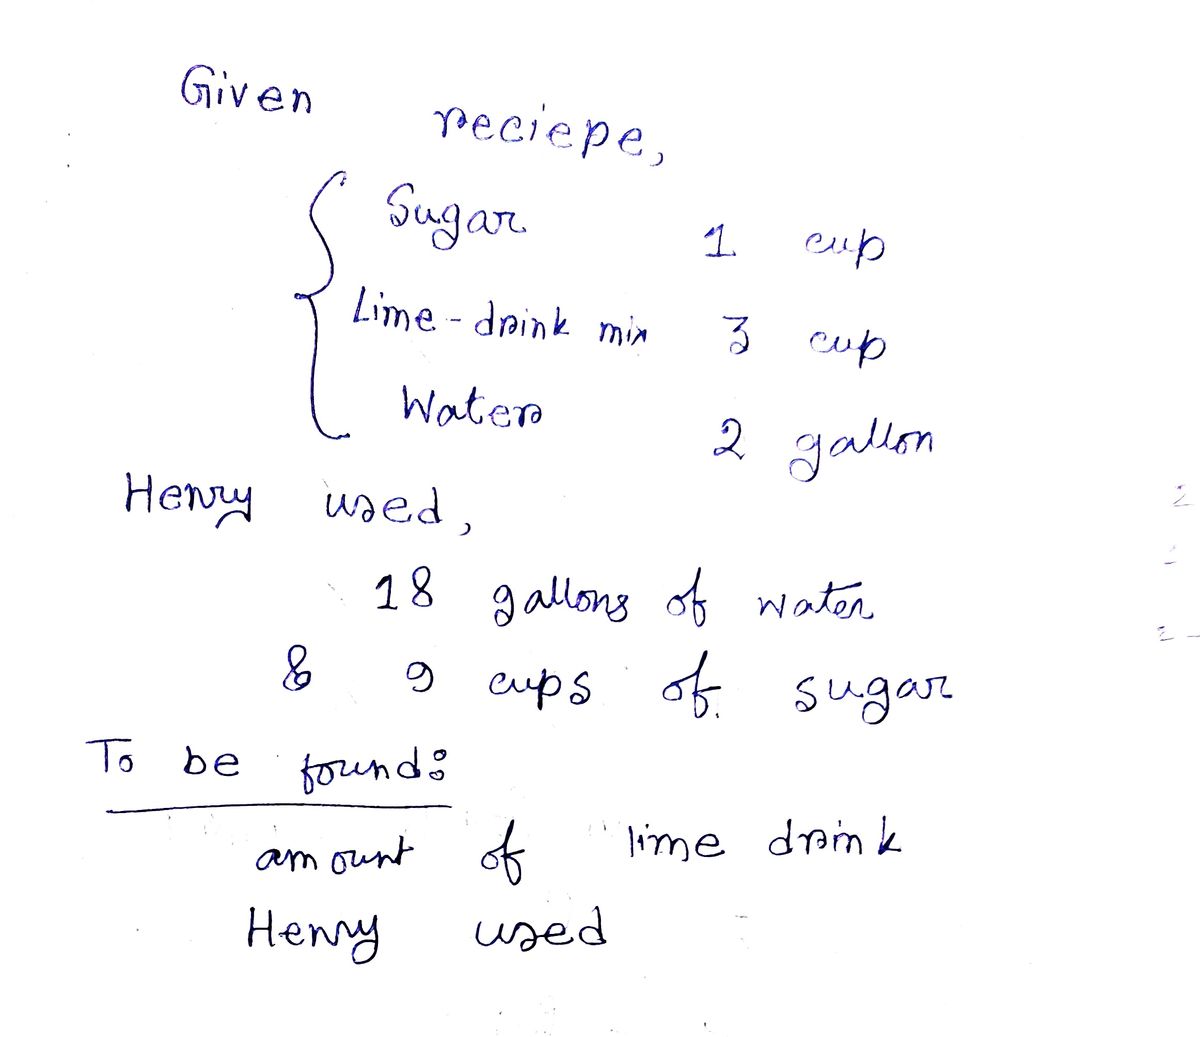 Given reciepe,
Sugar 1 cup
Lime-drink mix 3 cup
Water 2 gallon
Henry used,
18 gallons of water
& 9 cups of sugar
To be found:
amount of lime drink
Henry used